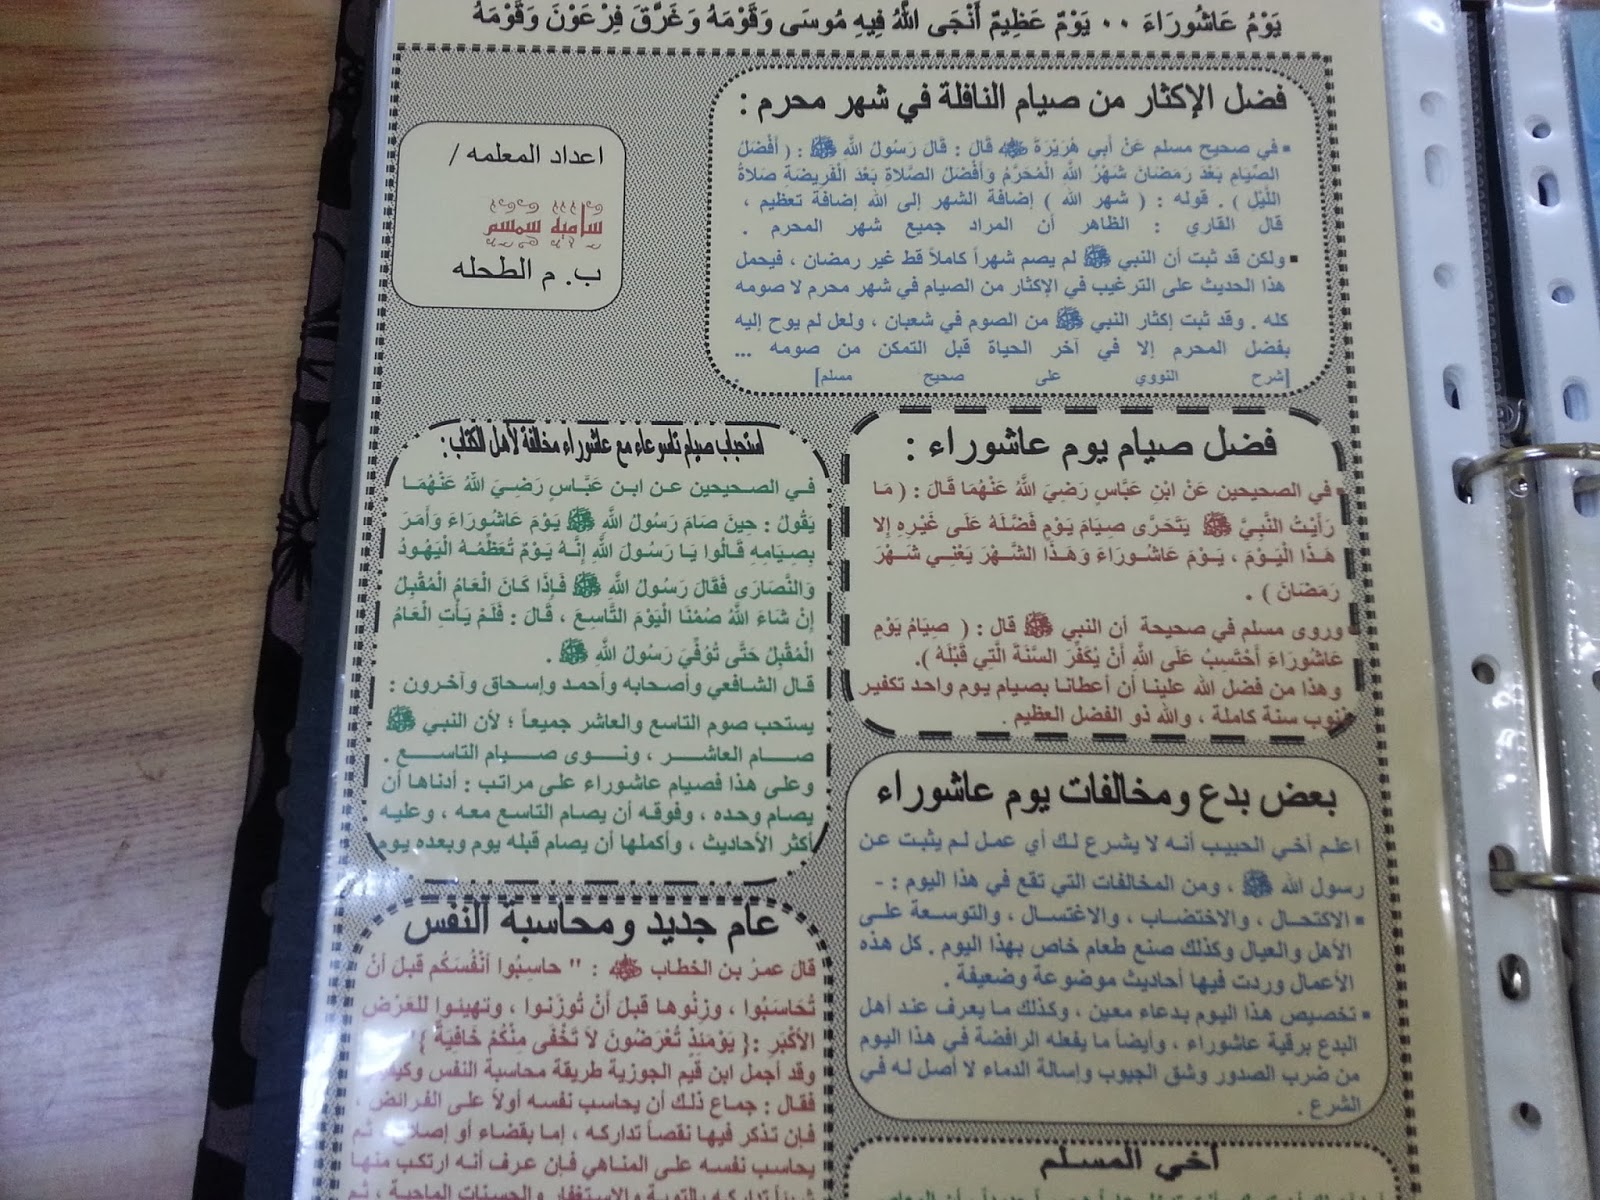 يَوْمُ عَاشُورَاءَ ٠٠ يَوْمٌ عَظِيمٌ أَنْجَى اللَّهُ فِيهِ مُوسَى وَقَوْمَهُ وَغَرَّقَ فِرْعَوْنَ وَقَوْمَهُ
فضل الإكثار من صيام النافلة في شهر محرم :
في صحيح مسلم عَنْ أبي هُرَيْرَةَ ﵁ قَالَ : قَالَ رَسُولُ اللَّهِ ﷺ : ( أَفْضَلُ
الصِّيَامِ بَعْدَ رَمَضَانَ شَهْرُ اللَّهِ الْمُحَرَّمُ وَأَفْضَلُ الصَّلَاةِ بَعْدَ الْفَرِيضَةِ صَلَاةُ
اللَّيْلِ ) . قوله : ( شهر الله ) إضافة الشهر إلى الله إضافة تعظيم ،
قال القاري : الظاهر أن المراد جميع شهر المحرم .
ولكن قد ثبت أن النبي ﷺ لم يصم شهراً كاملاً قط غير رمضان ، فيحمل
هذا الحديث على الترغيب في الإكثار من الصيام في شهر محرم لا صومه
كله . وقد ثبت إكثار النبي ﷺ من الصوم في شعبان ، ولعل لم يوح إليه
بفضل المحرم إلا في آخر الحياة قبل التمكن من صومه ...
[شرح النووي على صحيح مسلم] .
اعداد المعلمه /
سامية سمسم
ب. م الطحله
فضل صيام يوم عاشوراء :
في الصحيحين عَنْ ابْنِ عَبَّاسٍ رَضِيَ اللَّهُ عَنْهُمَا قَالَ : ( مَا
رَأَيْتُ النَّبِيَّ ﷺ يَتَحَرَّى صِيَامَ يَوْمٍ فَضَّلَهُ عَلَى غَيْرِهِ إِلا
هَذَا الْيَوْمَ ، يَوْمَ عَاشُورَاءَ وَهَذَا الشَّهْرَ يَعْنِي شَهْرَ
رَمَضَانَ ) .
وروى مسلم في صحيحة أن النبي ﷺ قال : ( صِيَامُ يَوْمِ
عَاشُورَاءَ أَحْتَسِبُ عَلَى اللَّهِ أَنْ يُكَفِّرَ السَّنَةَ الَّتِي قَبْلَهُ ).
وهذا من فضل الله علينا أن أعطانا بصيام يوم واحد تكفير
ذنوب سنة كاملة ، والله ذو الفضل العظيم .
استحباب صيام تاسوعاء مع عاشوراء مخالفة لأهل الكتاب :
في الصحيحين عن ابن عَبَّاس رَضِيَ اللَّهُ عَنْهُمَا
يَقُولُ : حِينَ صَامَ رَسُولُ اللَّهِ ﷺ يَوْمَ عَاشُورَاءَ وَأَمَرَ
بِصِيَامِهِ قَالُوا يَا رَسُولَ اللَّهِ إِنَّهُ يَوْمٌ تُعَظِّمُهُ الْيَهُودُ
وَالنَّصَارَى فَقَالَ رَسُولُ اللَّهِ ﷺ فَإِذَا كَانَ الْعَامُ الْمُقْبِلُ
إِنْ شَاءَ اللَّهُ صُمْنَا الْيَوْمَ التَّاسِعَ ، قَالَ : فَلَمْ يَأْتِ الْعَامُ
الْمُقْبِلُ حَتَّى تُوُفِّيَ رَسُولُ اللَّهِ ﷺ .
قال الشافعي وأصحابه وأحمد وإسحاق وآخرون :
يستحب صوم التاسع والعاشر جميعاً ؛ لأن النبي ﷺ
صام العاشر ، ونوى صيام التاسع .
وعلى هذا فصيام عاشوراء على مراتب : أدناها أن
يصام وحده ، وفوقه أن يصام التاسع معه ، وعليه
أكثر الأحاديث ، وأكملها أن يصام قبله يوم وبعده يوم
بعض بدع ومخالفات يوم عاشوراء
اعلم أخي الحبيب أنه لا يشرع لك أي عمل لم يثبت عن
رسول الله ﷺ ، ومن المخالفات التي تقع في هذا اليوم : -
الاكتحال ، والاختضاب ، والاغتسال ، والتوسعة على
الأهل والعيال وكذلك صنع طعام خاص بهذا اليوم . كل هذه
الأعمال وردت فيها أحاديث موضوعة وضعيفة .
تخصيص هذا اليوم بدعاء معين ، وكذلك ما يعرف عند أهل
البدع برقية عاشوراء ، وأيضاً ما يفعله الرافضة في هذا اليوم
من ضرب الصدور وشق الجيوب وإسالة الدماء لا أصل له في
الشرع .
عام جديد ومحاسبة النفس
قال عمرُ بن الخطاب ﵁ : " حاسِبُوا أنْفُسَكُم قبلَ أنْ
تُحَاسَبُوا ، وزِنُوها قبلَ أَنْ تُوزَنوا ، وتهيئوا للعَرْضِ
الأكْبَرِ :{ يَوْمَئِذٍ تُعْرَضُونَ لَا تَخْفَى مِنْكُمْ خَافِيَةٌ }"
وقد أجمل ابن قيم الجوزية طريقة محاسبة النفس
فقال : جماع ذلك أن يحاسب نفسه أولاً على الفرائض ،
فإن تذكر فيها نقصاً تداركه ، إما بقضاء أو إصلاح ، ثم
يحاسب نفسه على المناهي فإن عرف أنه ارتكب منها
شيئاً تداركه بالتوبة والاستغفار والحسنات الماحية ، ثم
أخي المسلم